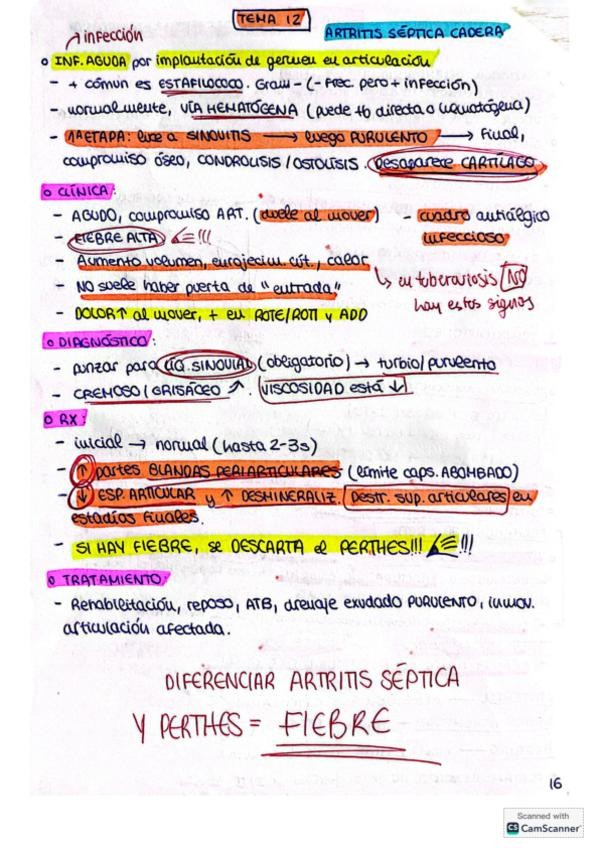 TEMA 12
↗ infección
ARTRITIS SÉPTICA CADERA
o INF. AGUDA por implantación de germen en articulación
- + común es ESTAFILOCOCO. Gram - (- frec pero + infección)
- normalmente, VÍA HEMATÓGENA (puede tb directa o
- 1ª ETAPA: lleve a SINOVITIS → luego PURULENTO → Final,
compromiso óseo, CONDROLISIS / OSTOLISIS. Desaparece CARTÍLAGO
o CLÍNICA:
- AGUDO, compromiso ART. (duele al mover) - cuadro antiálgico
infeccioso
- FIEBRE ALTA !!!
- Aumento volumen, enrojecim. cut., calor
↳ en tuberculosis NO
hay estos signos
- NO suele haber puerta de "entrada"
- DOLOR↑ al mover, + en ROTE/ROTI y ADD
o DIAGNÓSTICO:
- punzar para LÍQ. SINOVIAL (obligatorio) → turbio/purulento
- CREMOSO / GRISÁCEO ↗. VISCOSIDAD está ↓
o RX:
- inicial → normal (hasta 2-3s)
- ↑ partes BLANDAS PERIARTICULARES (límite caps. ABOMBADO)
- ↓ ESP. ARTICULAR y ↑ DESMINERALIZ. Destr. sup. articulares en
estadíos finales.
- SI HAY FIEBRE, se DESCARTA el PERTHES!!! !!!
o TRATAMIENTO:
- Rehabilitación, reposo, ATB, drenaje exudado PURULENTO, inmov.
articulación afectada.
DIFERENCIAR ARTRITIS SÉPTICA
Y PERTHES = FIEBRE
16
Scanned with
CS CamScanner